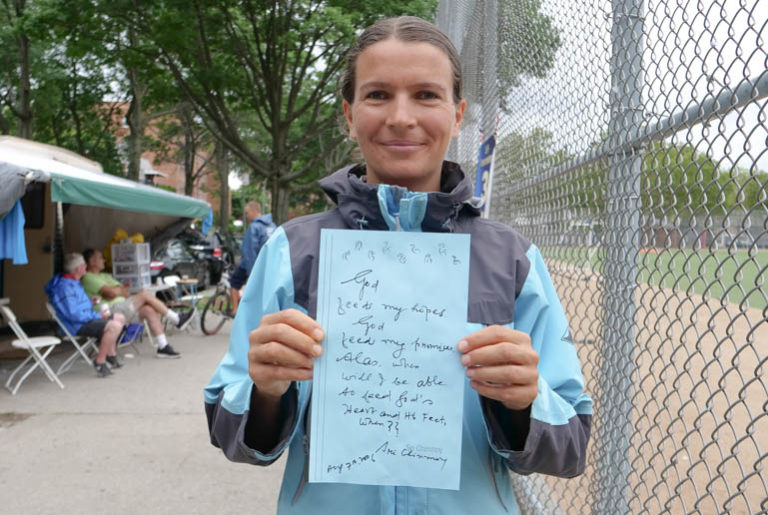 God
feeds my hopes
God
feeds my promises
Alas, when
will I be able
to feed God's
Heart and His Feet,
When??
Sri Chinmoy
Sri Chinmoy